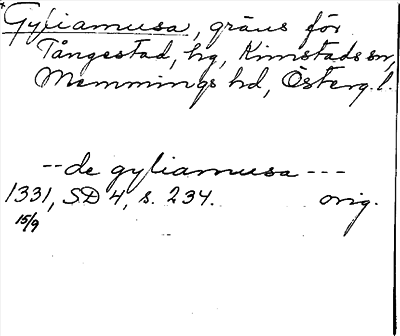 *Gyliamusa, gräns för
Tångestad, hg, Kimstads sn,
Memmings hd, Österg.l.
--de gyliamusa ---
1331, SD 4, s. 234. orig.
15/9